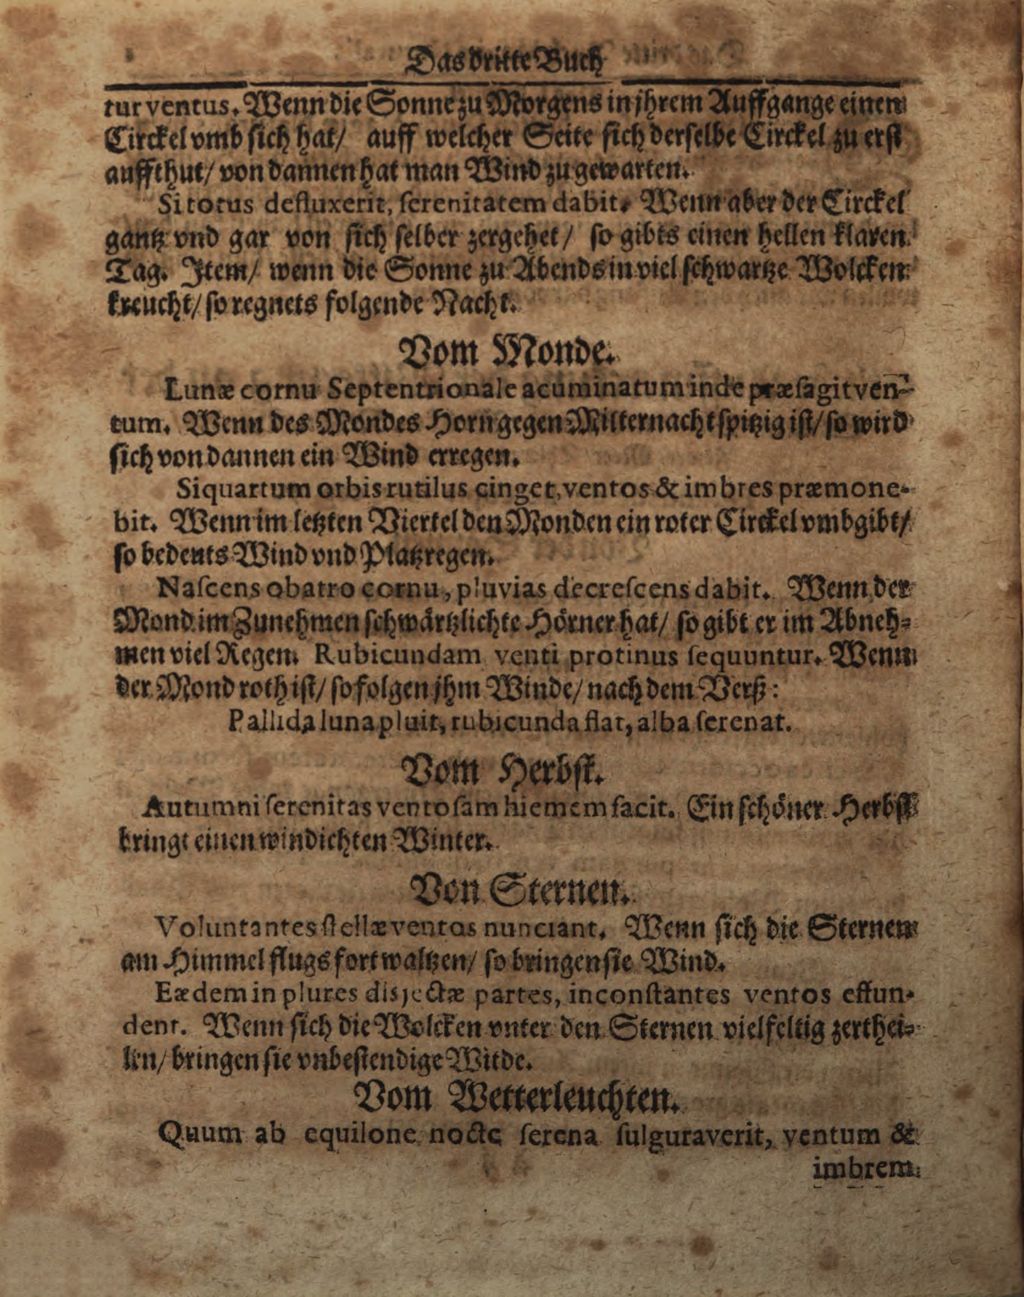 Das dritte Buch
tur ventus. Wenn die Sonne zu Morgens in jhrem Auffgange einen
Circkel vmb sich hat/ auff welcher Seite sich derselbe Circkel zu erst
auffthut/ von dannen hat man Wind zu gewarten.
Si totus defluxerit, ſerenitatem dabit. Wenn aber der Circkel
gantz vnd gar von sich selber zergehet/ so gibts einen hellen klaren
Tag. Item/ wenn die Sonne zu Abends in viel schwartze Wolcken
kreucht/ so regnets folgende Nacht.
Vom Monde.
Lunæ cornu Septentrionale acuminatum inde præſagit ven-
tum. Wenn des Mondes Horn gegen Mitternacht spitzig ist/ so wird
sich von dannen ein Wind erregen.
Si quartum orbis rutilus cinget, ventos & imbres præmone-
bit. Wenn im letzten Viertel den Monden ein roter Circkel vmbgibt/
so bedeuts Wind vnd Platzregen.
Naſcens obatro cornu, pluvias decreſcens dabit. Wenn der
Mond im Zunehmen schwärtzlichte Hörner hat/ so gibt er im Abneh-
men viel Regen. Rubicundam venti protinus ſequuntur. Wenn
der Mond roth ist/ so folgen jhm Winde/ nach dem Verß:
Pallida luna pluit, rubicunda flat, alba ſerenat.
Vom Herbst.
Autumni ſerenitas ventoſam hiemem facit. Ein schöner Herbst
bringt einen windichten Winter.
Von Sternen.
Voluntantes ſtellæ ventos nunciant. Wenn sich die Sternen
am Himmel flugs fort waltzen/ so bringen sie Wind.
Eædem in plures disjectæ partes, inconſtantes ventos effun-
dent. Wenn sich die Wolcken vnter den Sternen vielfeltig zerthei-
len/ bringen sie vnbestendige Witde.
Vom Wetterleuchten.
Quum ab equilone nocte ſerena fulguraverit, ventum &
imbrem